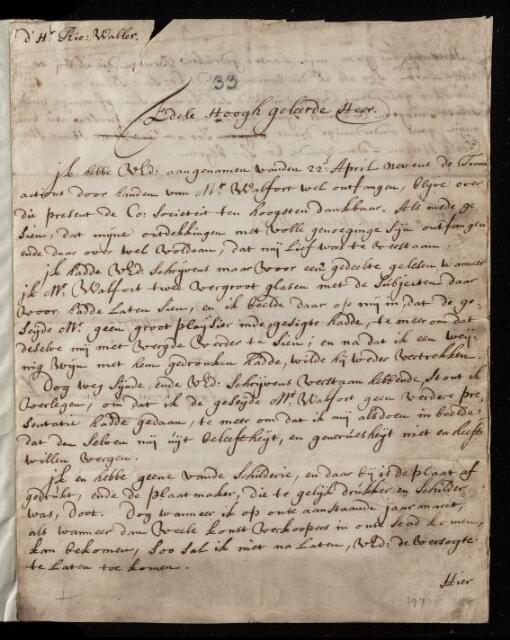 d'Hr. Ric: Waller.
33
Edele Hoogh geleerde Heer.
ick hebbe UEd: aangenamen vanden 22.e April nevens de Trans
actions door handen van Mr. Walfort wel ontfangen, blijve over
die present de Co: Societeit ten hoogsten dankbaar. Als mede ge
sien, dat mijne ontdekkingen met volle genoeginge sijn ontfangen
ende daar over wel voldaan, dat mij lief was te verstaan.
ik hadde UEd Schrijvens maar voor een gedeelte gelesen wanneer
ik Mr. Walfort twee vergroot glasen met de Subjecten daar
voor, hadde laten sien, en ik beelde daar op mij in, dat de ge-
seijde Mr. geen groot plaijsier inde gesigte hadde, te meer om dat
deselve mij niet vergde vorder te sien; en na dat ik een wey-
nig wijn met hem gedronken hadde, wilde hij weder vertrekken.
Dog weg sijnde, ende UEd: Schrijvens verstaan hebbende, stont ik
verlegen, om dat ik de geseijde Mr. Walfort geen verdere pre,
sentatie hadde gedaan, te meer om dat ik mij alsdoen in beelde,
dat den selven mij uijt beleeftheijt, en genereusheijt niet en heeft
willen vergen.
ik en hebbe geene vande Schilderie, en daar bij is de plaat af
gedrukt, ende de plaatmaker, die te gelijk drukker en Schilder
was, doot. Dog wanneer ik op onse aanstaande jaar marct,
als wanneer dan veele konst verkoopers in onse stad komen,
kan bekomen, soo sal ik niet na laten, UEd: de versogte
te laten toe komen.
Hier
297